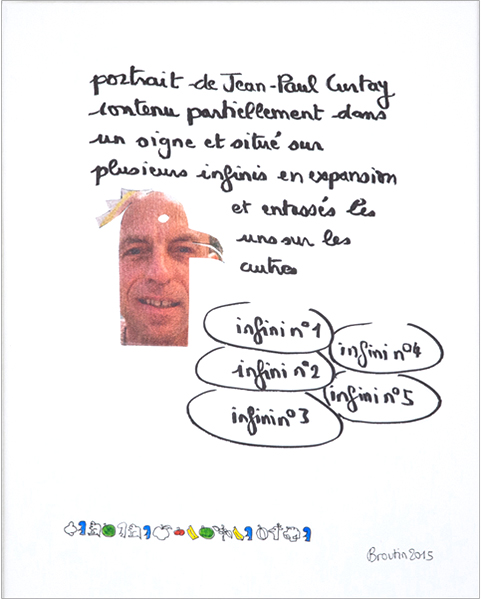 portrait de Jean-Paul Curtay
contenu partiellement dans
un signe et situé sur
plusieurs infinis en expansion
et entassés les
uns sur les
autres
infini n°1
infini n°4
infini n°2
infini n°5
infini n°3
Broutin 2015